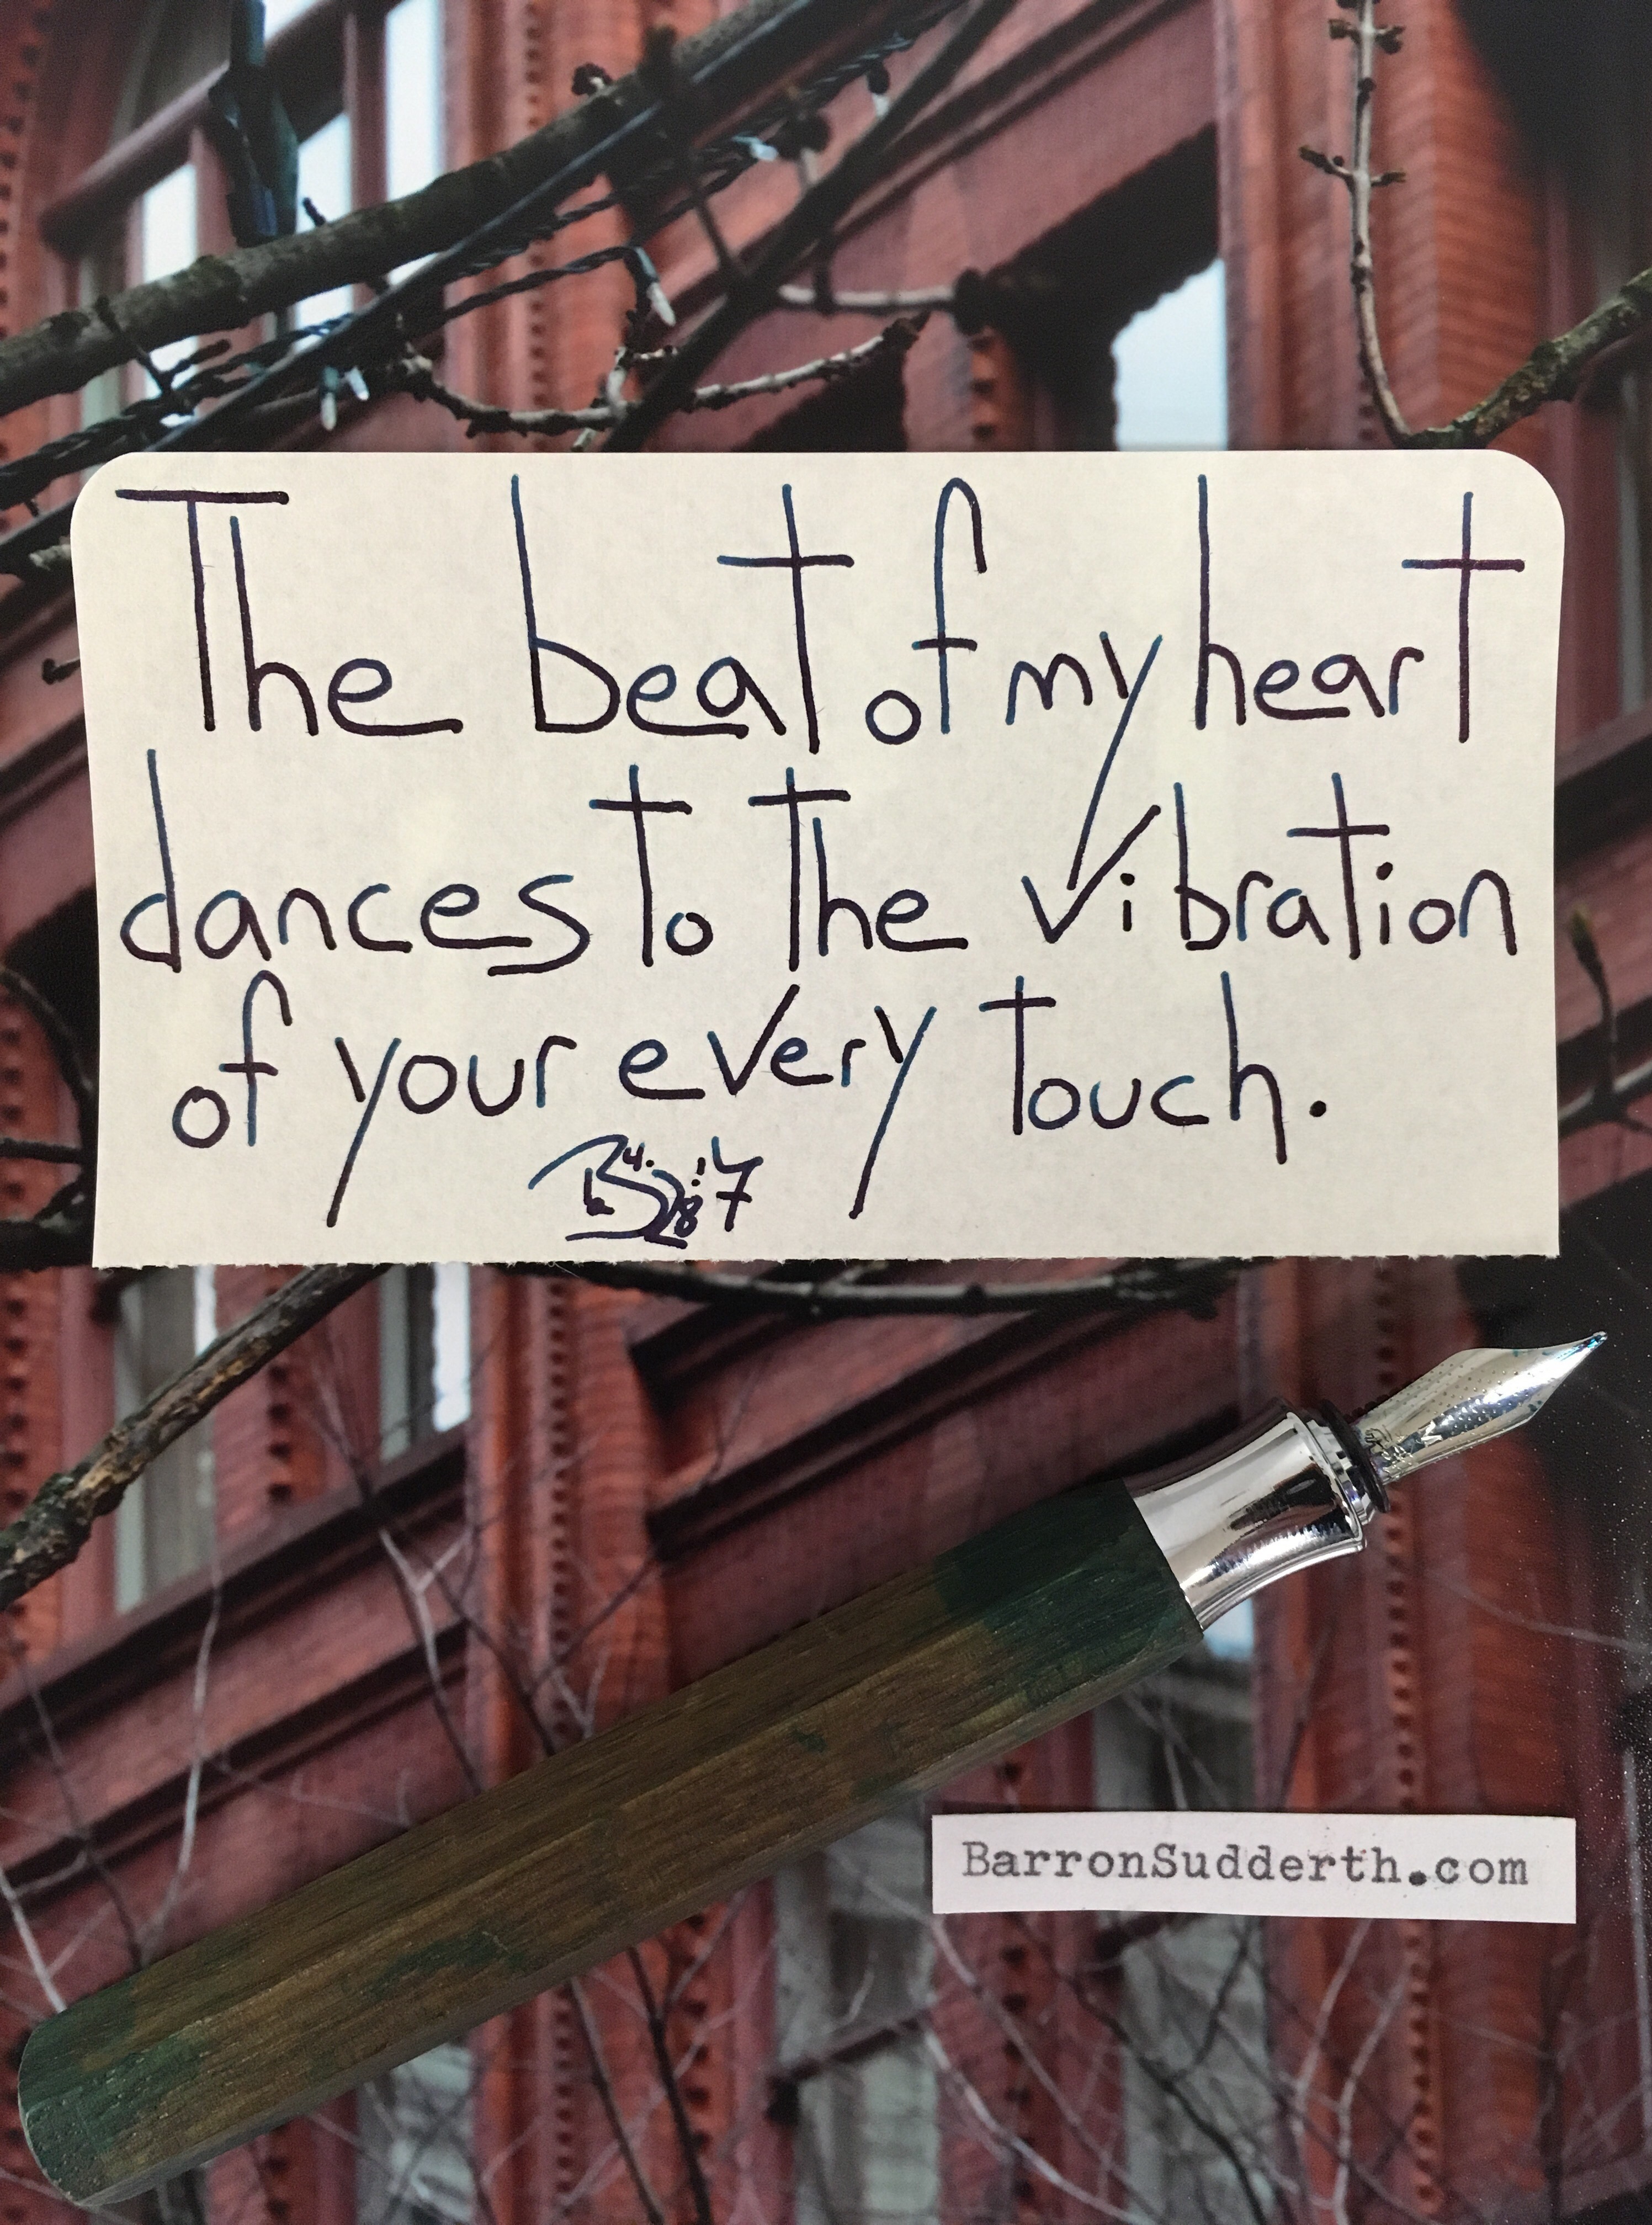 The beat of my heart
dances to the vibration
of your every touch.
BarronSudderth.com